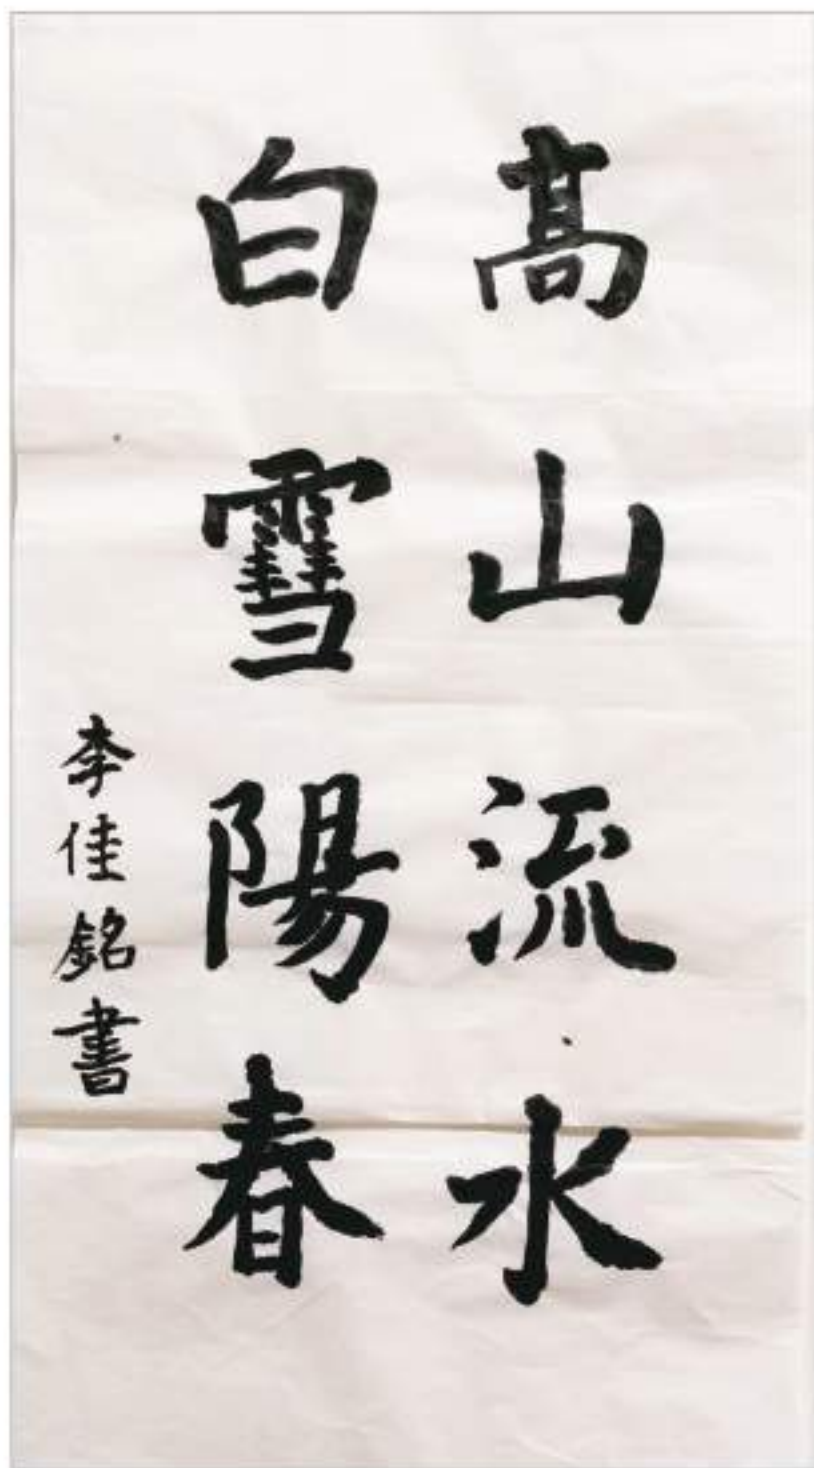 髙山流水
白雪陽春
李佳銘書